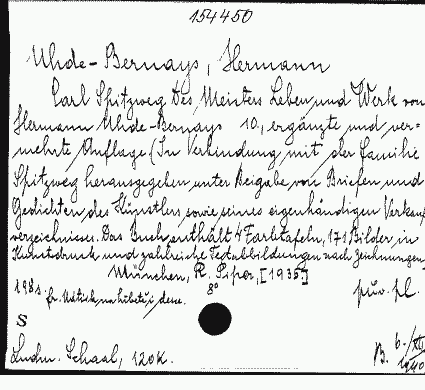 154450
Uhde-Bernays, Hermann
Carl Spitzweg Des Meisters Leben und Werk von
Hermann Uhde-Bernays 10, ergänzte und ver-
mehrte Auflage (In Verbindung mit der Familie
Spitzweg herausgegeben unter Beigabe von Briefen und
Gedichten des Künstlers sowie seines eigenhändigen Verkaufs
verzeichnisses. Das Buch enthält 4 Farbtafeln, 171 Bilder in
Kunstdruck und zahlreiche Textabbildungen nach Zeichnungen
München, R. Piper, [1935]
8°
198 s
pův. pl.
S
Ludm. Schaal, 120 K.
B. 6./XII
1940